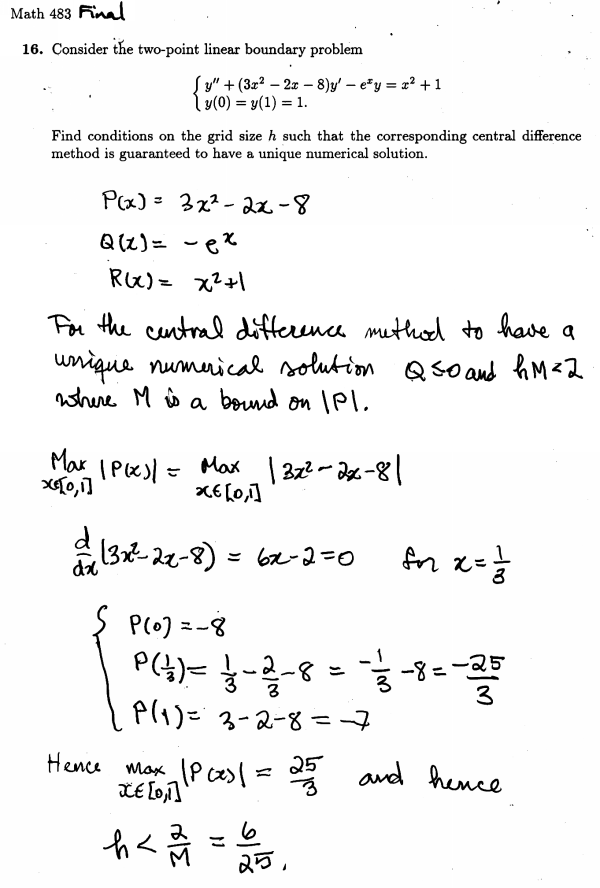 Math 483 Final
16. Consider the two-point linear boundary problem
{ y″ + (3x² − 2x − 8)y′ − eˣy = x² + 1
y(0) = y(1) = 1.
Find conditions on the grid size h such that the corresponding central difference
method is guaranteed to have a unique numerical solution.
P(x) = 3x² − 2x − 8
Q(x) = − eˣ
R(x) = x² + 1
For the central difference method to have a
unique numerical solution Q ≤ 0 and hM < 2
where M is a bound on |P|.
Max x∈[0,1] |P(x)| = Max x∈[0,1] |3x² − 2x − 8|
d/dx (3x² − 2x − 8) = 6x − 2 = 0 for x = 1/3
{ P(0) = −8
P(1/3) = 1/3 − 2/3 − 8 = −1/3 − 8 = −25/3
P(1) = 3 − 2 − 8 = −7
Hence max x∈[0,1] |P(x)| = 25/3 and hence
h < 2/M = 6/25.